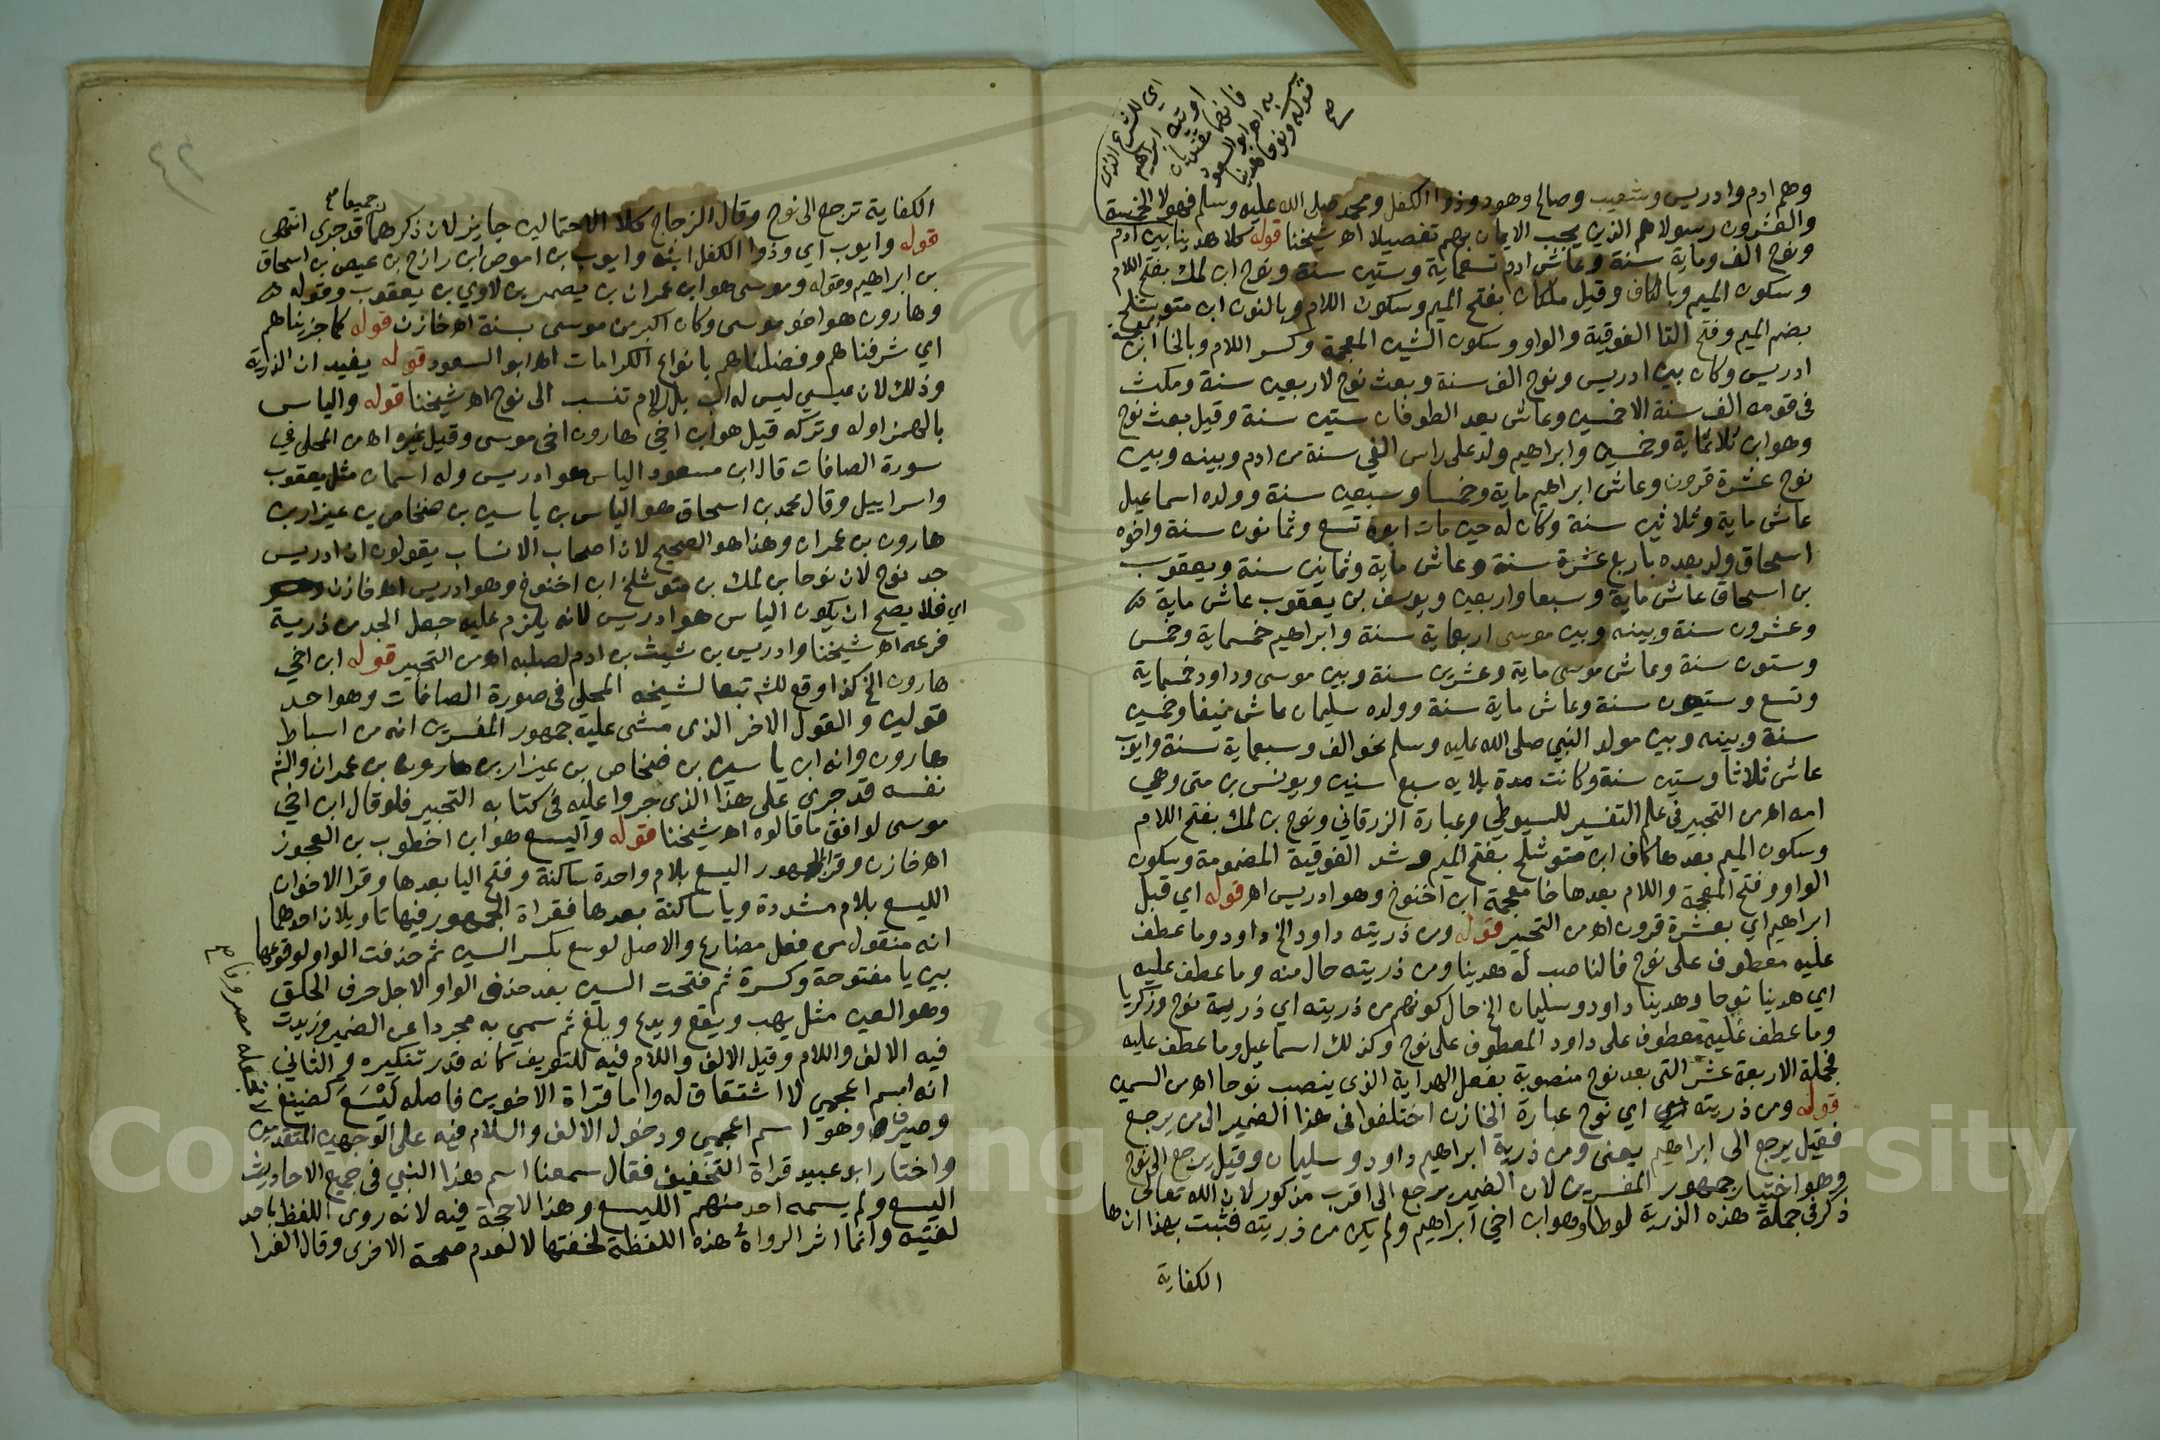 وهم ادم وادريس وشعيب وصالح وهود وذوا الكفل ومحمد صلى الله عليه وسلم فهولا الخمسة
والعشرون رسولا هم الذين يجب الايمان بهم تفصيلا اهـ شيخنا قوله كلا هدينا بين ادم
ونوح الف وماية سنة وعاش ادم تسعماية وستين سنة ونوح ابن لمك بفتح اللام
وسكون الميم وبالكاف وقيل ملكان بفتح الميم وسكون اللام وبالنون ابن متوشلخ
بضم الميم وفتح التا الفوقية والواو وسكون الشين المعجمة وكسر اللام وبالخا المعجمة ابن
ادريس وكان بين ادريس ونوح الف سنة وبعث نوح لاربعين سنة ومكث
في قومه الف سنة الا خمسين وعاش بعد الطوفان ستين سنة وقيل بعث نوح
وهو ابن ثلاثماية وخمسين وابراهيم ولد على راس الفي سنة من ادم وبينه وبين
نوح عشرة قرون وعاش ابراهيم ماية وخمسا وسبعين سنة وولده اسماعيل
عاش ماية وثلاثين سنة وكان له حين مات ابوه تسع وثمانون سنة واخوه
اسحاق ولد بعده باربع عشرة سنة وعاش ماية وثمانين سنة ويعقوب
بن اسحاق عاش ماية وسبعا واربعين ويوسف بن يعقوب عاش ماية
وعشرون سنة وبينه وبين موسى اربعماية سنة وابراهيم خمسماية وخمس
وستون سنة وعاش موسى ماية وعشرين سنة وبين موسى وداود خمسماية
وتسع وستون سنة وعاش ماية سنة وولده سليمان عاش نيفا وخمسين
سنة وبينه وبين مولد النبي صلى الله عليه وسلم نحو الف وسبعماية سنة وايوب
عاش ثلاثا وستين سنة وكانت مدة بلايه سبع سنين ويونس بن متى وهي
امه اهـ من التحبير في علم التفسير للسيوطي وعبارة الزرقاني ونوح بن لمك بفتح اللام
وسكون الميم بعدها كاف ابن متوشلخ بفتح الميم وشد الفوقية المضمومة وسكون
الواو وفتح المعجمة واللام بعدها خا معجمة ابن اخنوخ وهو ادريس اهـ قوله اي قبل
ابراهيم اي بعشرة قرون اهـ من التحبير قوله ومن ذريته داود الخ داود وما عطف
عليه معطوف على نوح فالناصب له هدينا ومن ذريته حال منه وما عطف عليه
اي هدينا نوحا وهدينا داود وسليمان الخ حال كونهم من ذريته اي ذرية نوح وزكريا
وما عطف عليه معطوف على داود المعطوف على نوح وكذلك اسماعيل وما عطف عليه
فجملة الاربعة عشر التي بعد نوح منصوبة بفعل الهداية الذي ينصب نوحا اهـ من السمين
قوله ومن ذريته اي نوح عبارة الخازن اختلفوا في هذا الضمير الى من يرجع
فقيل يرجع الى ابراهيم يعني ومن ذرية ابراهيم داود وسليمان وقيل يرجع الى نوح
وهو اختيار جمهور المفسرين لان الضمير يرجع الى اقرب مذكور لان الله تعالى
ذكر في جملة هذه الذرية لوطا وهو ابن اخي ابراهيم ولم يكن من ذريته فثبت بهذا ان ها
الكفاية
اي للشرع الذي
اوتيه ابراهيم
فانهما مقتديان
به اهـ ابو السعود
قوله ونوحا هدينا
جميعا
الكفاية ترجع الى نوح وقال الزجاج كلا الاحتمالين جايز لان ذكرهما قد جرى انتهى
قوله وايوب اي وذوا الكفل ابنه وايوب بن اموص ابن رازح بن عيص بن اسحاق
بن ابراهيم وقوله وموسى هو ابن عمران بن يصهر بن لاوي بن يعقوب وقوله
وهارون هو اخو موسى وكان اكبر من موسى بسنة اهـ خازن قوله كما جزيناهم
اي شرفناهم وفضلناهم بانواع الكرامات اهـ ابو السعود قوله يفيد ان الذرية
وذلك لان عيسى ليس له اب بل الام تنسب الى نوح اهـ شيخنا قوله والياس
بالهمز اوله وتركه قيل هو ابن اخي هارون اخي موسى وقيل غيره اهـ من المحلي في
سورة الصافات قال ابن مسعود الياس هو ادريس وله اسمان مثل يعقوب
واسراييل وقال محمد بن اسحاق هو الياس بن ياسين بن فنحاص بن عيزار بن
هارون بن عمران وهذا هو الصحيح لان اصحاب الانساب يقولون ان ادريس
جد نوح لان نوحا بن لمك بن متوشلخ ابن اخنوخ وهو ادريس اهـ خازن
اي فلا يصح ان يكون الياس هو ادريس لانه يلزم عليه جعل الجد من ذرية
فرعه اهـ شيخنا وادريس بن شيث بن ادم لصلبه اهـ من التحبير قوله ابن اخي
هارون الخ كذا وقع للشم تبعا لشيخه المحلي في صورة الصافات وهو احد
قولين والقول الاخر الذي مشى عليه جمهور المفسرين انه من اسباط
هارون وانه ابن ياسين بن فنحاص بن عيزار بن هارون بن عمران والشم
نفسه قد جرى على هذا الذي جروا عليه في كتابه التحبير فلو قال ابن اخي
موسى لوافق ما قالوه اهـ شيخنا قوله واليسع هو ابن اخطوب بن العجوز
اهـ خازن وقرا الجمهور اليسع بلام واحدة ساكنة وفتح اليا بعدها وقرا الاخوان
الليسع بلام مشددة ويا ساكنة بعدها فقراة الجمهور فيها تاويلان احدهما
انه منقول من فعل مضارع والاصل لوسع بكسر السين ثم حذفت الواو لوقوعها
بين يا مفتوحة وكسرة ثم فتحت السين بعد حذف الواو لاجل حرف الحلق
وهو العين مثل يهب ويقع ويدع ويلغ ثم سمي به مجردا عن الضمير وزيدت
فيه الالف واللام وقيل الالف واللام فيه للتعريف كانه قدر تنكيره والثاني
انه اسم اعجمي لا اشتقاق له واما قراة الاخوين فاصله ليسع كضيغم
وصيرف وهو اسم اعجمي ودخول الالف والسلام فيه على الوجهين المتقدمين
واختار ابو عبيد قراة التخفيف فقال سمعنا اسم هذا النبي في جميع الاحاديث
اليسع ولم يسمه احد منهم الليسع وهذا لا حجة فيه لانه روى اللفظ باحد
لغتيه وانما اثر الرواة هذه اللفظة لخفتها لا لعدم صحة الاخرى وقال الفرا
٤٢
Copyright © King Saud University